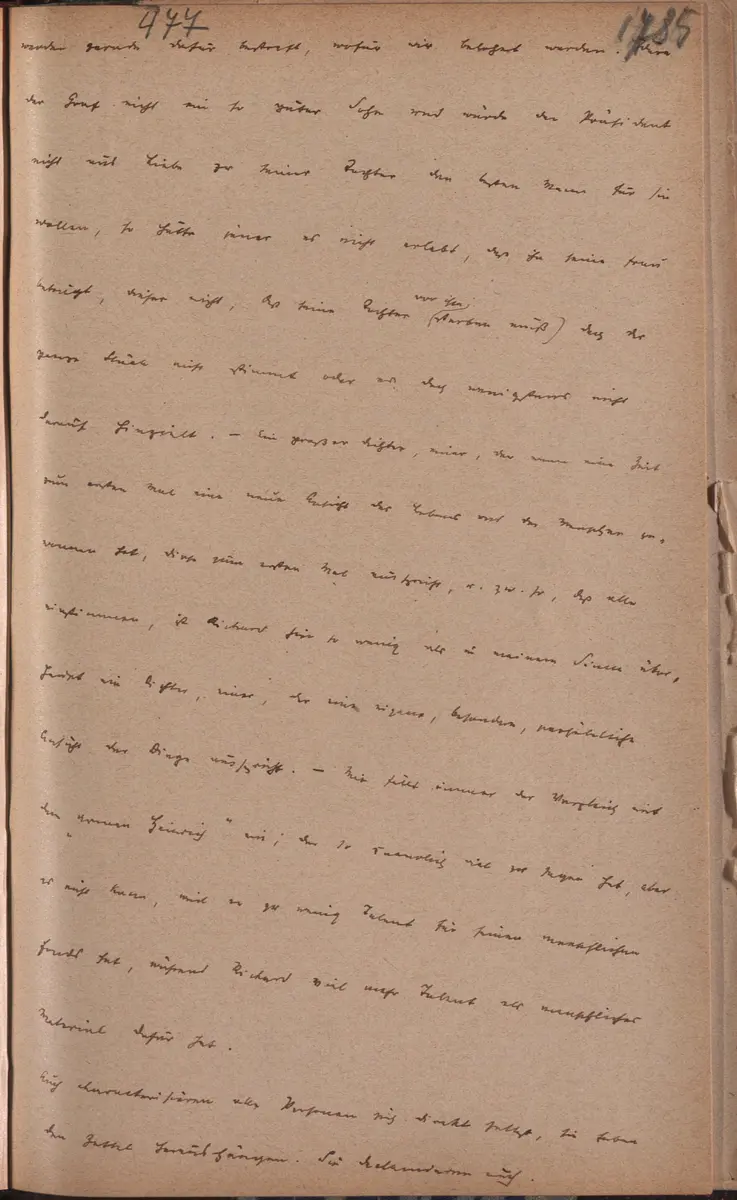 477 1785
werden gerade dafür bestraft, wofür wir belohnt werden. Wäre
der Graf nicht ein so guter Sohn und würde der Präsident
nicht aus Liebe zu seiner Tochter den besten Mann für sie
wollen, so hätte jener es nicht erlebt, daß ihn seine Frau
betrügt, dieser nicht, daß seine Tochter (vor ihm sterben muß) daß die
ganze Stück nicht stimmt oder es doch wenigstens nicht
darauf hinzielt. – Ein großer Dichter, einer, der einer Zeit
zum ersten Mal eine neue Ansicht des Lebens und der Menschen ge-
wonnen hat, diese zum ersten Mal ausspricht, u. zw. so, daß alle
einstimmen, ist Richard hier so wenig als in meinem Sinne über-
haupt ein Dichter, einer, der eine eigene, besondere, persönliche
Ansicht der Dinge ausspricht. – Mir fällt immer der Vergleich mit
dem „armen Heinrich" ein; der so viel zu sagen hat, aber
es nicht kann, weil er zu wenig Talent für seinen menschlichen
Fonds hat, während Richard viel mehr Talent als menschliches
Material dafür hat.
Auch charakterisieren alle Personen sich direkt selbst, sie haben
den Zettel heraushängen. Sie deklamieren auch.